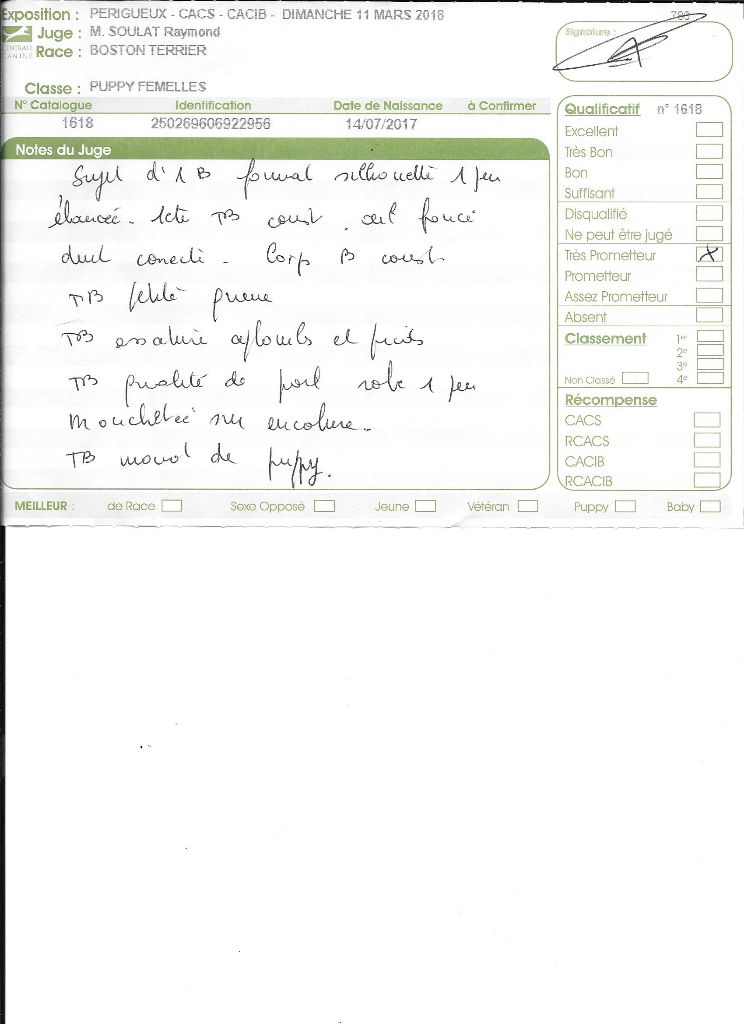 Exposition : PERIGUEUX - CACS - CACIB - DIMANCHE 11 MARS 2018
Juge : M. SOULAT Raymond
Race : BOSTON TERRIER
CENTRALE CANINE
Signature :
Classe : PUPPY FEMELLES
N° Catalogue Identification Date de Naissance à Confirmer
1618 250269606922956 14/07/2017
Notes du Juge
Sujet d'1 B format silhouette 1 peu
élancée. Tete TB const. oeil foncé
dent correcte - Corp B const
TB petite queue
TB ossature aplombs et pieds
TB qualité de poil robe 1 peu
Mouchetée sur encolure.
TB mouvt de puppy.
Qualificatif n° 1618
Excellent
Très Bon
Bon
Suffisant
Disqualifié
Ne peut être jugé
Très Prometteur X
Prometteur
Assez Prometteur
Absent
Classement 1er
2e
3e
Non Classé 4e
Récompense
CACS
RCACS
CACIB
RCACIB
MEILLEUR : de Race Sexe Opposé Jeune Vétéran Puppy Baby